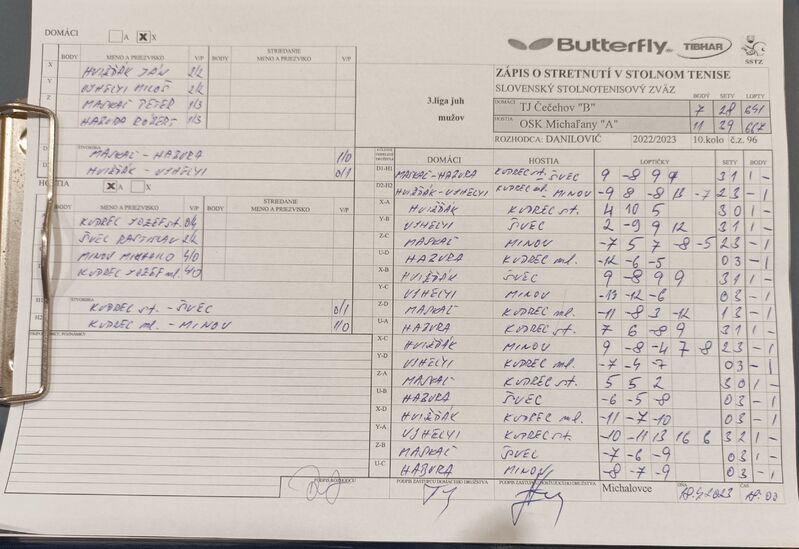 DOMÁCI A X
Butterfly TIBHAR SSTZ
BODY MENO A PRIEZVISKO V/P BODY STRIEDANIE MENO A PRIEZVISKO V/P
X HVIŽĎÁK JÁN 2/2
Y UJHELYI MILOŠ 2/2
Z MASKAĽ PETER 1/3
U HAŽURA RÓBERT 1/3
ŠTVORHRA
MASKAĽ - HAŽURA 1/0
HVIŽĎÁK - UJHELYI 0/1
ZÁPIS O STRETNUTÍ V STOLNOM TENISE
SLOVENSKÝ STOLNOTENISOVÝ ZVÄZ
3.liga juh mužov
BODY SETY LOPTY
DOMÁCI TJ Čečehov "B" 7 28 641
HOSTIA OSK Michaľany "A" 11 39 667
ROZHODCA: DANILOVIČ 2022/2023 10.kolo č.z. 96
HOSTIA X
BODY MENO A PRIEZVISKO V/P BODY STRIEDANIE MENO A PRIEZVISKO V/P
KUDREC JOZEF st.
ŠVEC RASTISLAV 2/2
MINOV MIKHAILO 4/0
KUDREC JOZEF ml. 4/0
ŠTVORHRA
KUDREC st. - ŠVEC 0/1
KUDREC ml. - MINOV 1/0
DOMÁCI HOSTIA LOPTIČKY SETY BODY
D1-H1 MASKAĽ-HAŽURA KUDREC st. ŠVEC 9 -8 9 9 3 1 1 -
D2-H2 HVIŽĎÁK-UJHELYI KUDREC ml. MINOV -9 8 -8 13 -7 2 3 - 1
X-A HVIŽĎÁK KUDREC st. 4 10 5 3 0 1 -
Y-B UJHELYI ŠVEC 2 -9 9 12 3 1 1 -
Z-C MASKAĽ MINOV -7 5 7 -8 -5 2 3 - 1
U-D HAŽURA KUDREC ml. -12 -6 -5 0 3 - 1
X-B HVIŽĎÁK ŠVEC 9 -8 9 9 3 1 1 -
Y-C UJHELYI MINOV -13 -12 -6 0 3 - 1
Z-D MASKAĽ KUDREC ml. -11 -8 3 -12 1 3 - 1
U-A HAŽURA KUDREC st. 7 6 -8 9 3 1 1 -
X-C HVIŽĎÁK MINOV 9 -8 -4 7 -8 2 3 - 1
Y-D UJHELYI KUDREC ml. -7 -4 -7 0 3 - 1
Z-A MASKAĽ KUDREC st. 5 5 2 3 0 1 -
U-B HAŽURA ŠVEC -6 -5 -8 0 3 - 1
X-D HVIŽĎÁK KUDREC ml. -11 -7 -10 0 3 - 1
Y-A UJHELYI KUDREC st. -10 -11 13 16 6 3 2 1 -
Z-B MASKAĽ ŠVEC -7 -6 -9 0 3 - 1
U-C HAŽURA MINOV -8 -7 -9 0 3 - 1
PODPIS ROZHODCU PODPIS ZÁSTUPCU DOMÁCEHO DRUŽSTVA PODPIS ZÁSTUPCU HOSŤUJÚCEHO DRUŽSTVA Michalovce DŇA ČAS